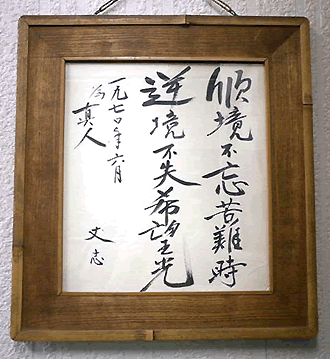 順境不忘苦難時
逆境不失希望光
一九七〇年六月
為真人
文志